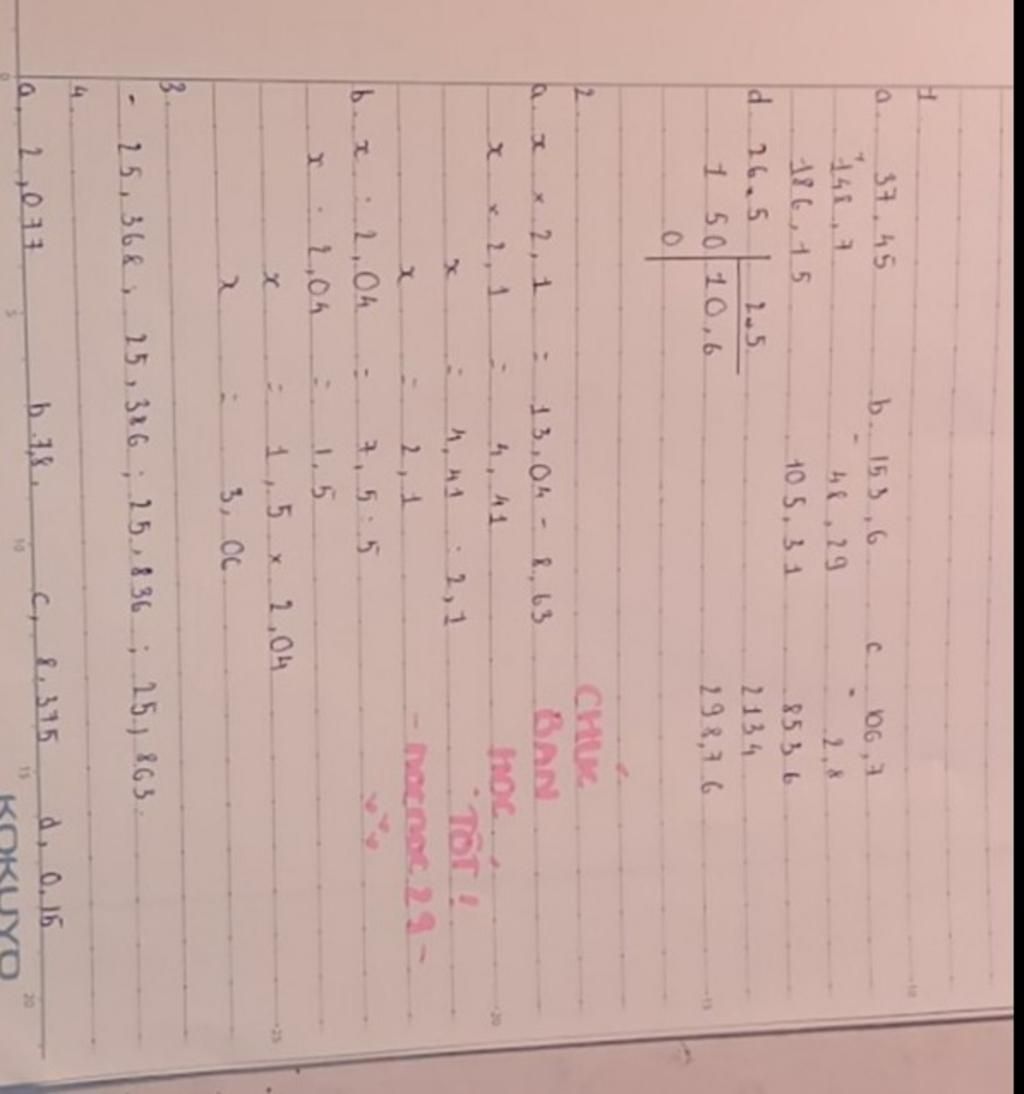 1
a. 37,45 b. 153,6 c 106,7
+ 148,7 - 48,29 × 2,8
186,15 105,31 853 6
d 26,5 2,5 2134
1 50 10,6 298,7 6
0
2 CHÚC
a. x × 2,1 = 13,04 - 8,63 BẠN
x × 2,1 = 4,41 HỌC
x = 4,41 : 2,1 TỐT!
x = 2,1 - nocnoc29 -
b. x : 2,04 = 7,5 : 5
x : 2,04 = 1,5
x = 1,5 × 2,04
x = 3,06
3.
- 25,368; 25,386; 25,836; 25,863.
4.
a, 2,077 b. 7,8. c, 8,375 d, 0,15
KOKUYO